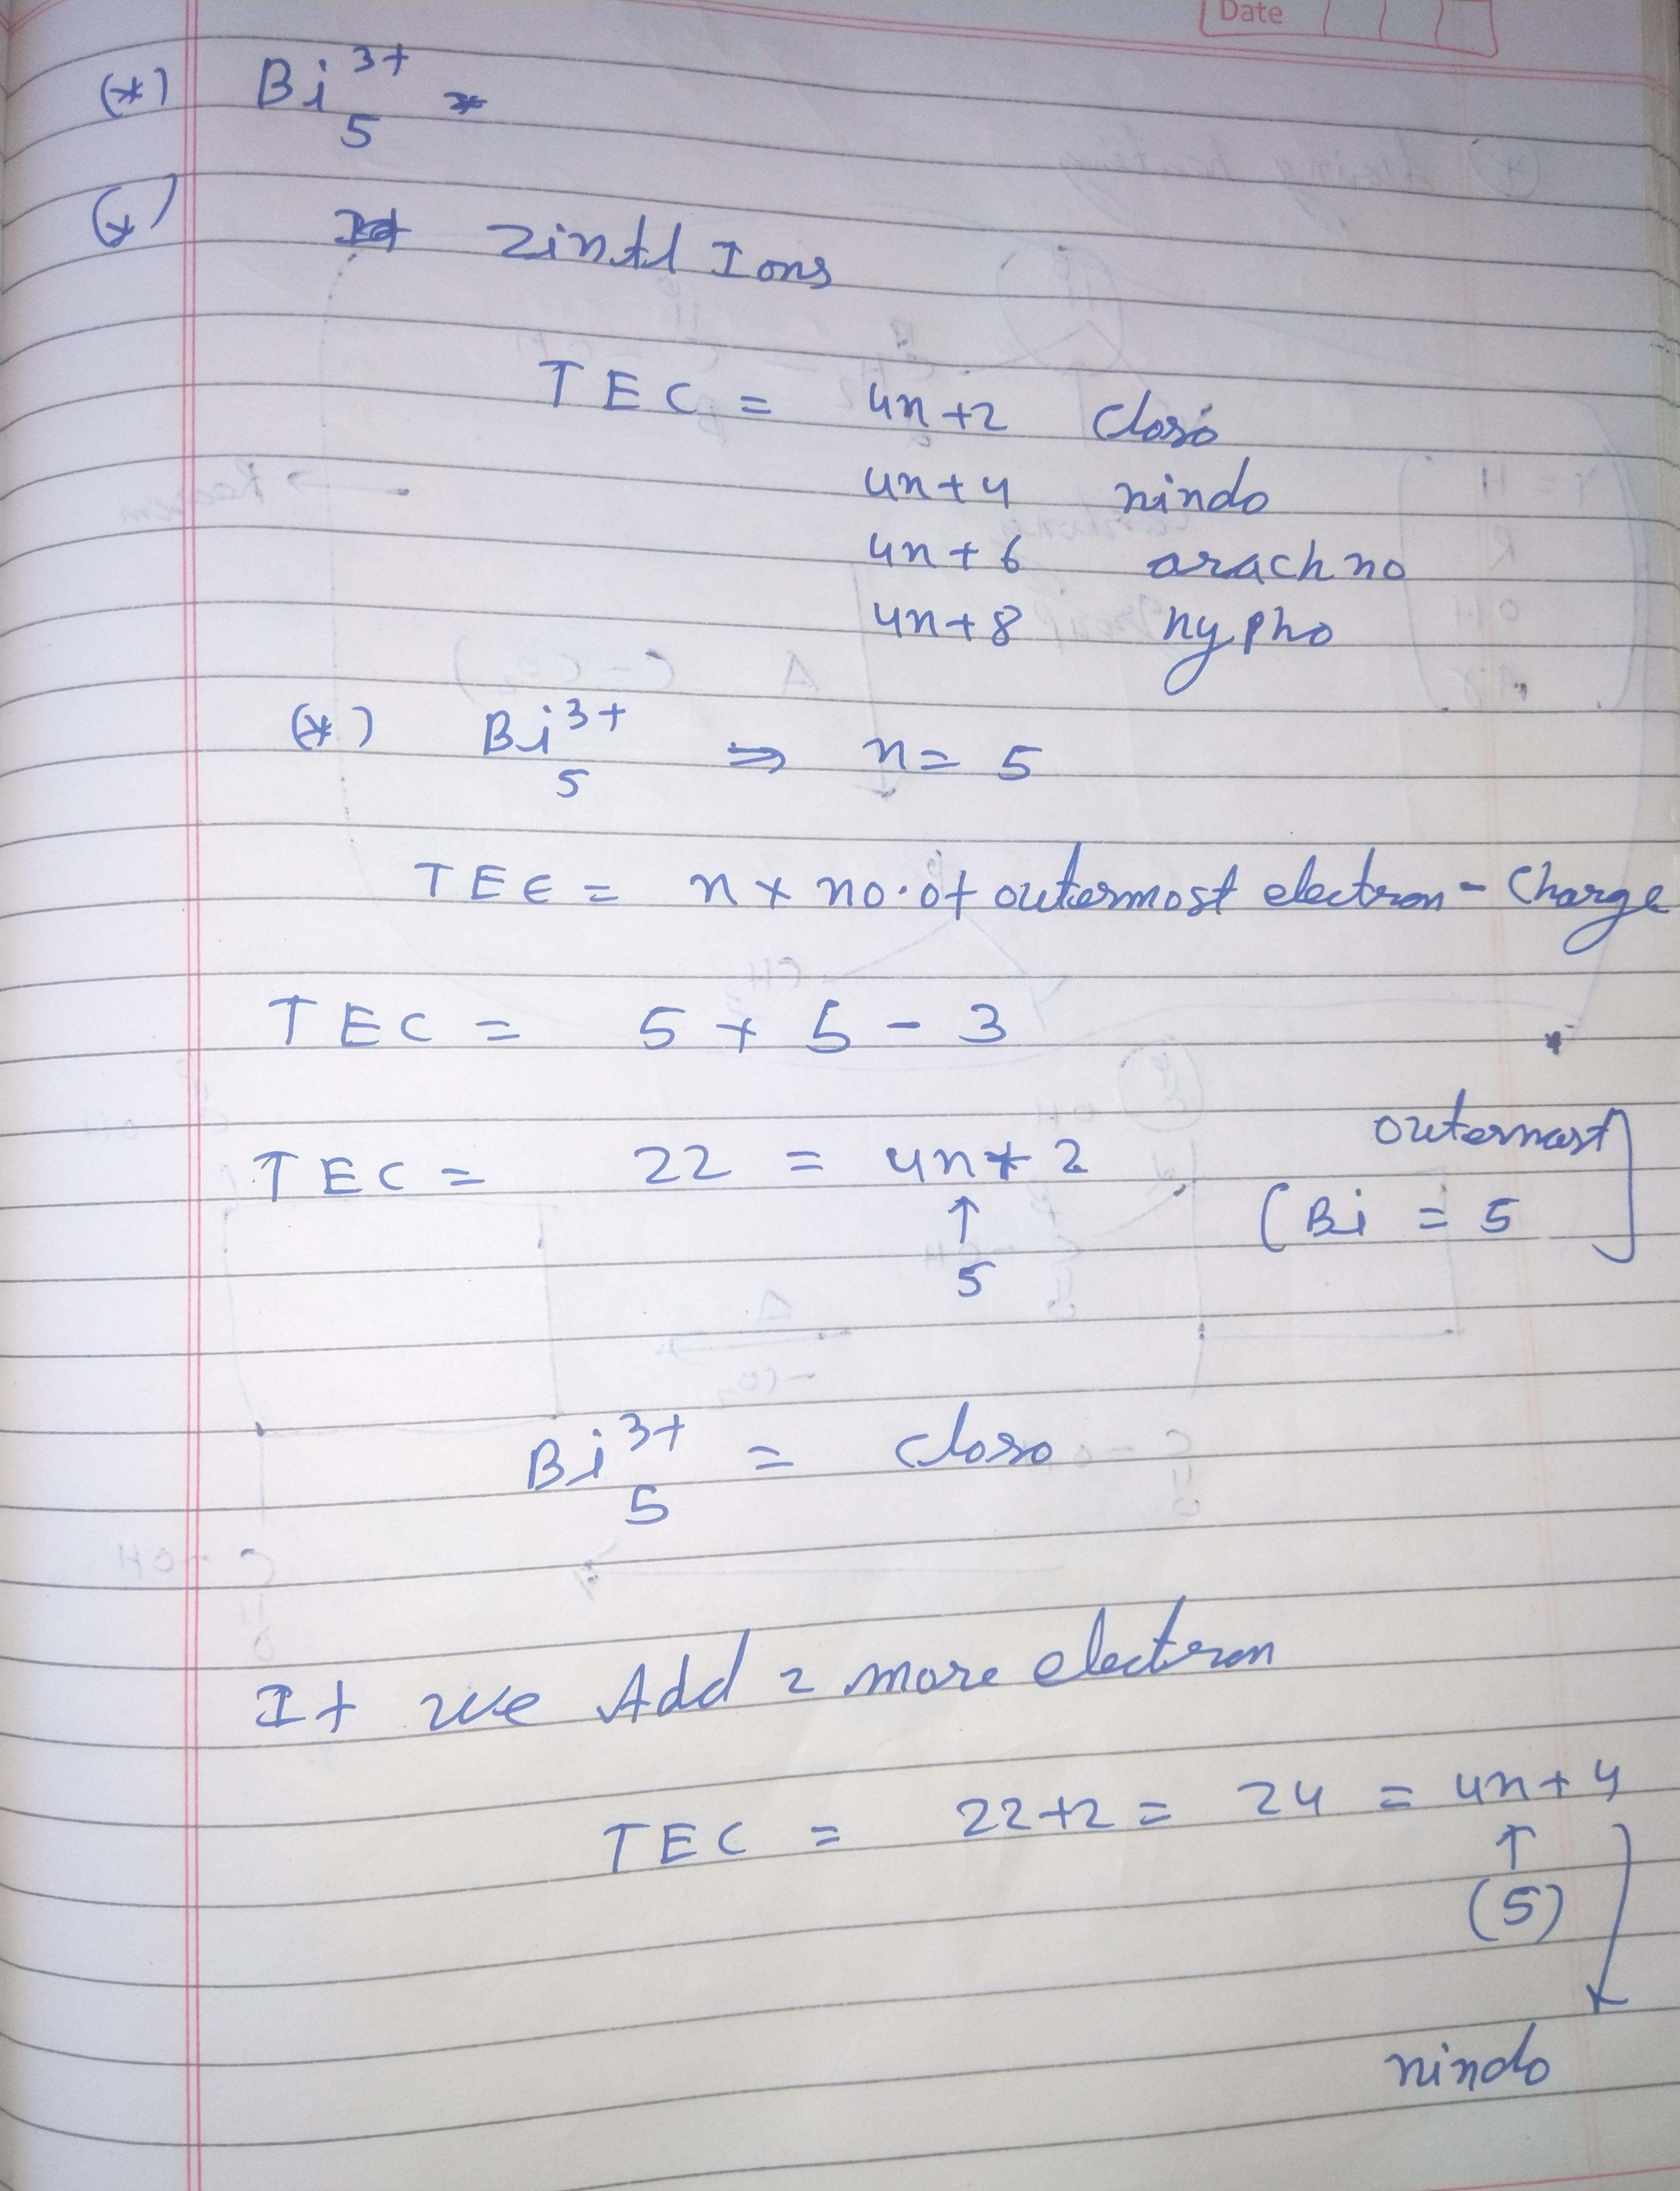 Date
(*) Bi₅³⁺
(*) Zintl Ions
TEC = 4n+2 Closo
4n+4 nindo
4n+6 arachno
4n+8 hypho
(*) Bi₅³⁺ ⇒ n = 5
TEC = n × no. of outermost electron - Charge
TEC = 5 × 5 - 3
TEC = 22 = 4n+2
↑
5
outermost
[Bi = 5]
Bi₅³⁺ = closo
If we Add 2 more electron
TEC = 22+2 = 24 = 4n+4
↑
(5)
nindo